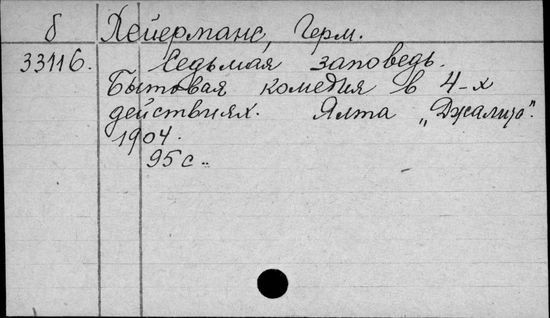 б Хейерманс, Герм.
33116. Седьмая заповедь.
Бытовая комедия в 4-х
действиях. Ялта „Джалита".
1904.
95 с..